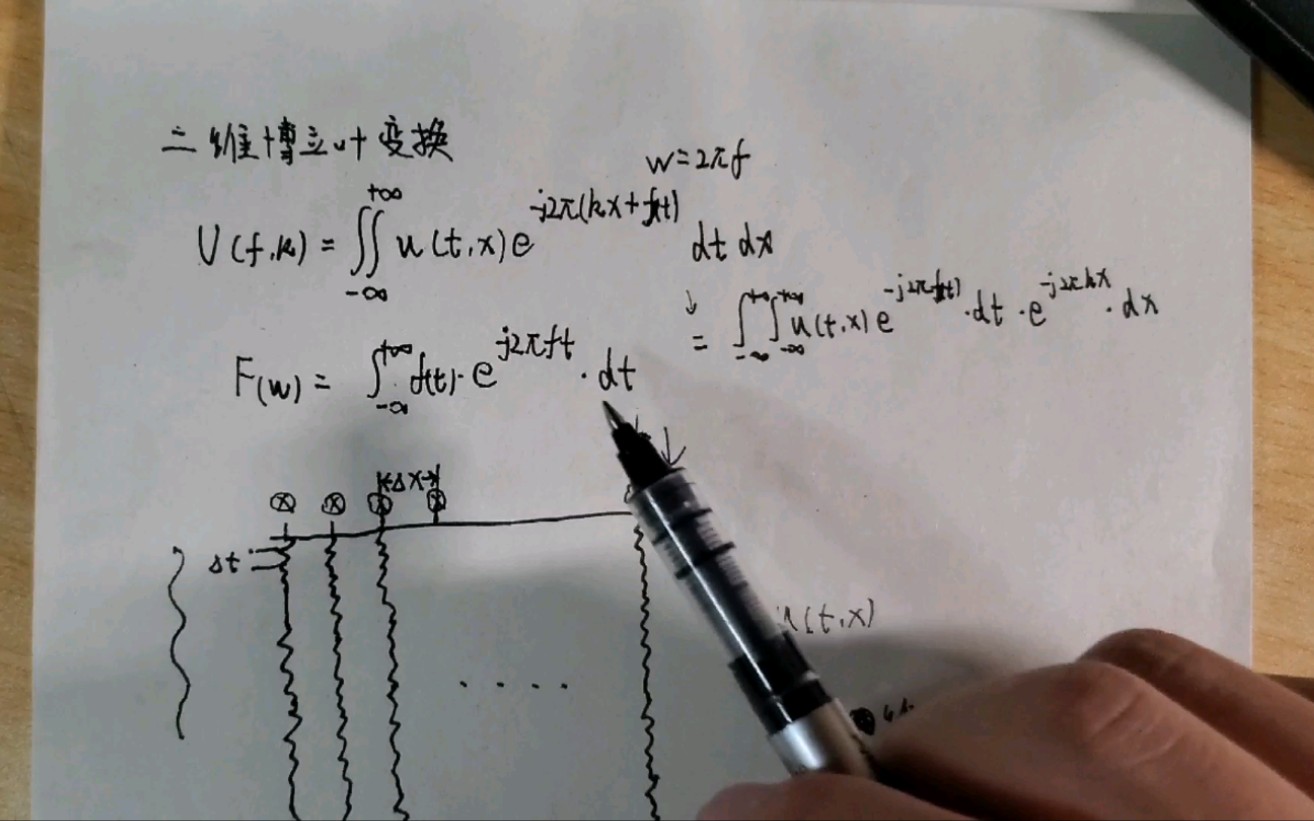 二维博立叶变换
w=2πf
U(f,k) = ∬_{-∞}^{+∞} u(t,x)e^{-j2π(kx+ft)} dt dx
↓
= ∫_{-∞}^{+∞}∫_{-∞}^{+∞} u(t,x)e^{-j2πft)}·dt·e^{-j2πkx}·dx
F(w) = ∫_{-∞}^{+∞} f(t)·e^{-j2πft}·dt
Δx
Δt
u(t,x)
....